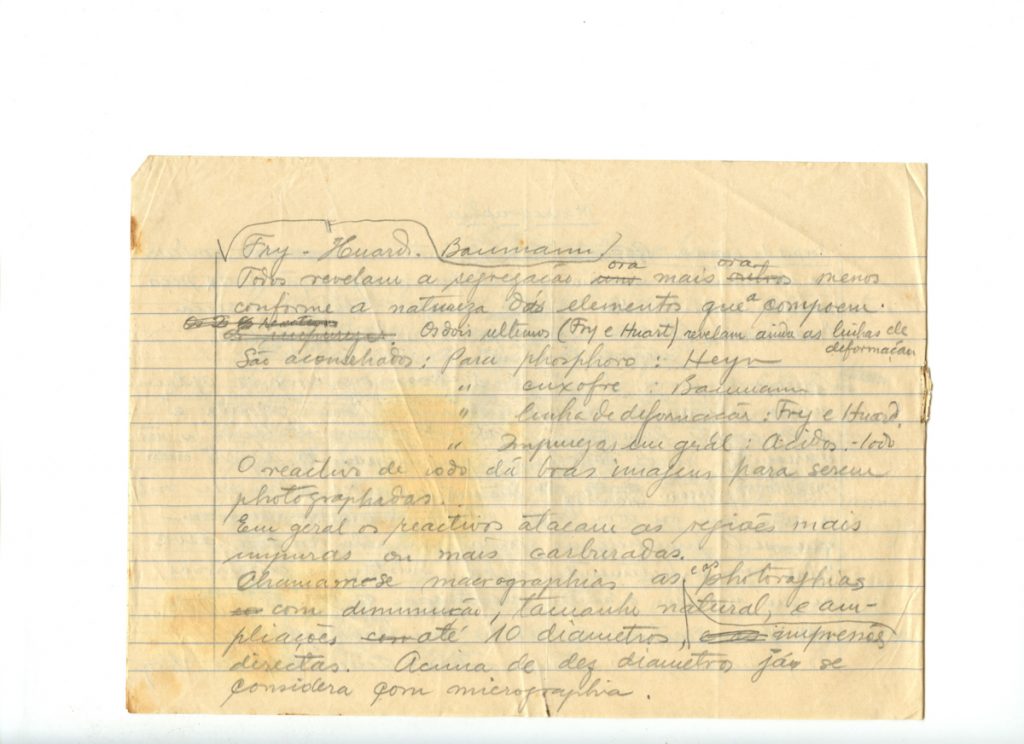 Fry - Huard. Baumann
Todos revelam a segregação ora mais ora menos
conforme a natureza dos elementos que a compoem.
Os dois ultimos (Fry e Huart) revelam ainda as linhas de
deformaçao
São aconselhados: Para phosphoro: Heyn
" enxofre: Baumann
" linha de deformação: Fry e Huard
" Impurezas em geral: Acidos - Iodo
O reactivo de iodo dá boas imagens para serem
photographadas.
Em geral os reactivos atacam as regiões mais
impuras ou mais carburadas.
Chamam-se macrographias as photoraphias
com diminuição, tamanho natural, e am-
pliações até 10 diametros, e as impressões
directas. Acima de dez diametros já se
considera com micrographia.